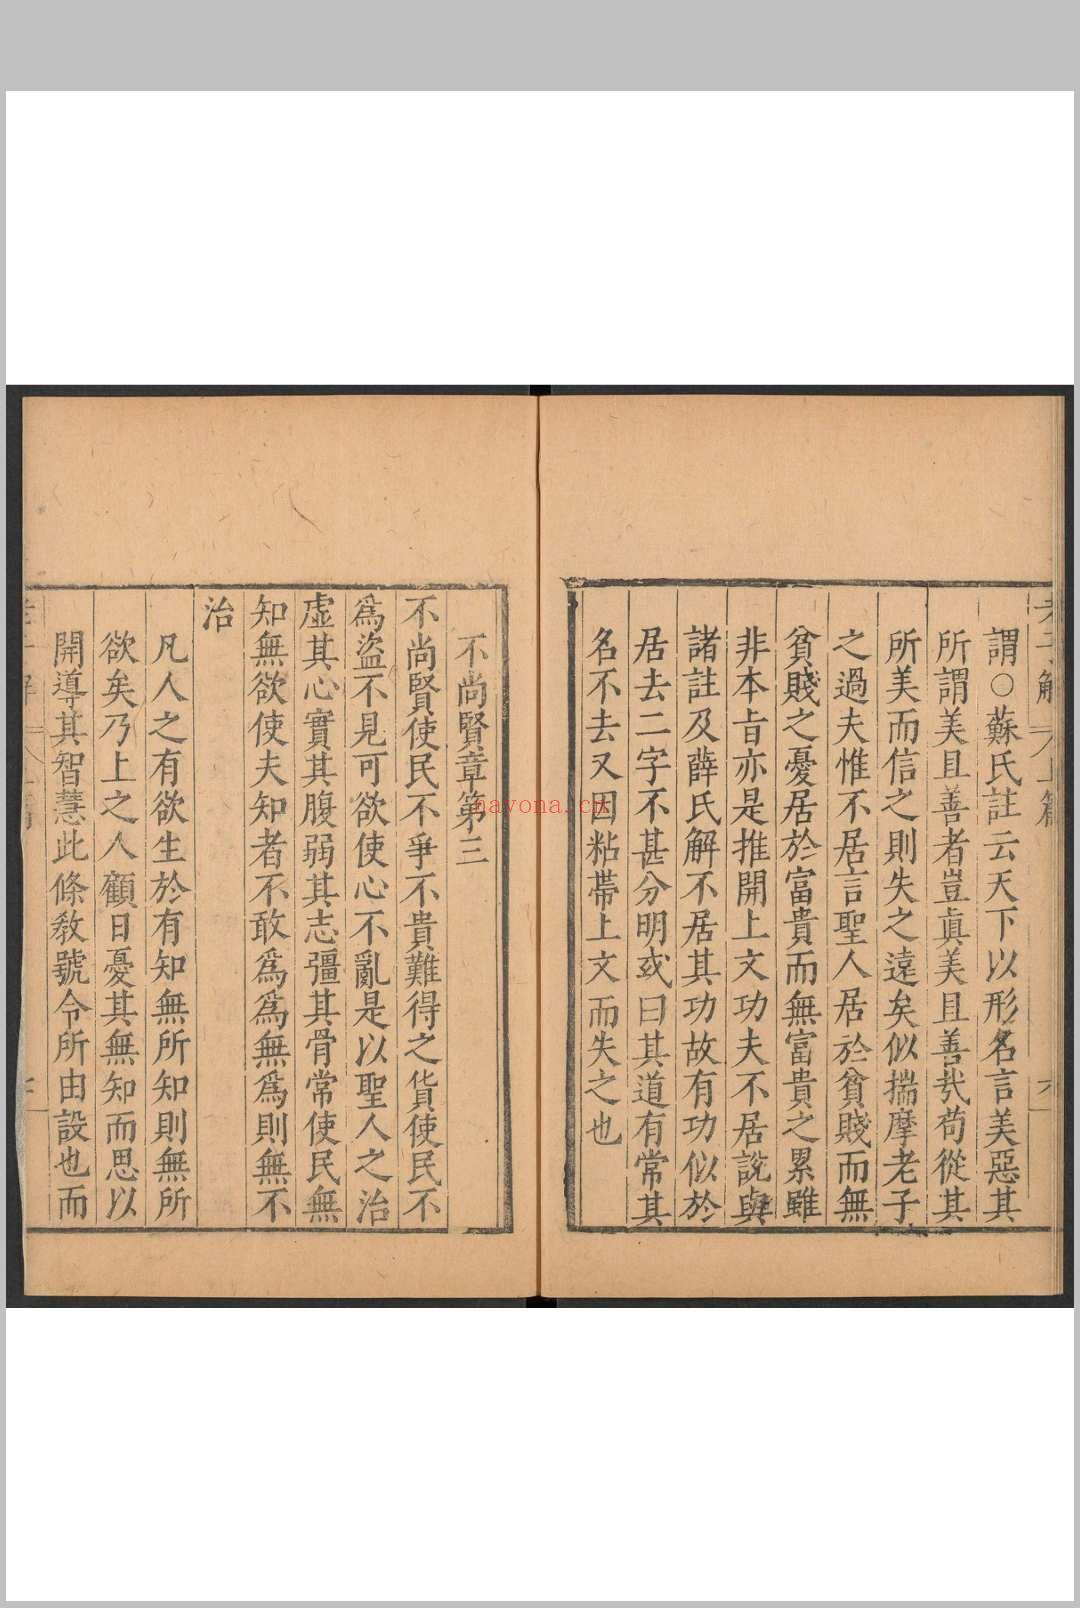 老子解 上篇 六
謂○蘇氏註云天下以形名言美惡其
所謂美且善者豈真美且善㢤苟從其
所美而信之則失之遠矣似揣摩老子
之過夫惟不居言聖人居於貧賤而無
貧賤之憂居於富貴而無富貴之累雖
非本旨亦是推開上文功夫不居說與
諸註及薛氏解不居其功故有功似於
居去二字不甚分明或曰其道有常其
名不去又因粘帶上文而失之也
不尚賢章第三
不尚賢使民不爭不貴難得之貨使民不
爲盜不見可欲使心不亂是以聖人之治
虛其心實其腹弱其志彊其骨常使民無
知無欲使夫知者不敢爲爲無爲則無不
治
凡人之有欲生於有知無所知則無所
欲矣乃上之人顧日憂其無知而思以
開導其智慧此條敎號令所由設也而
nayona.cn